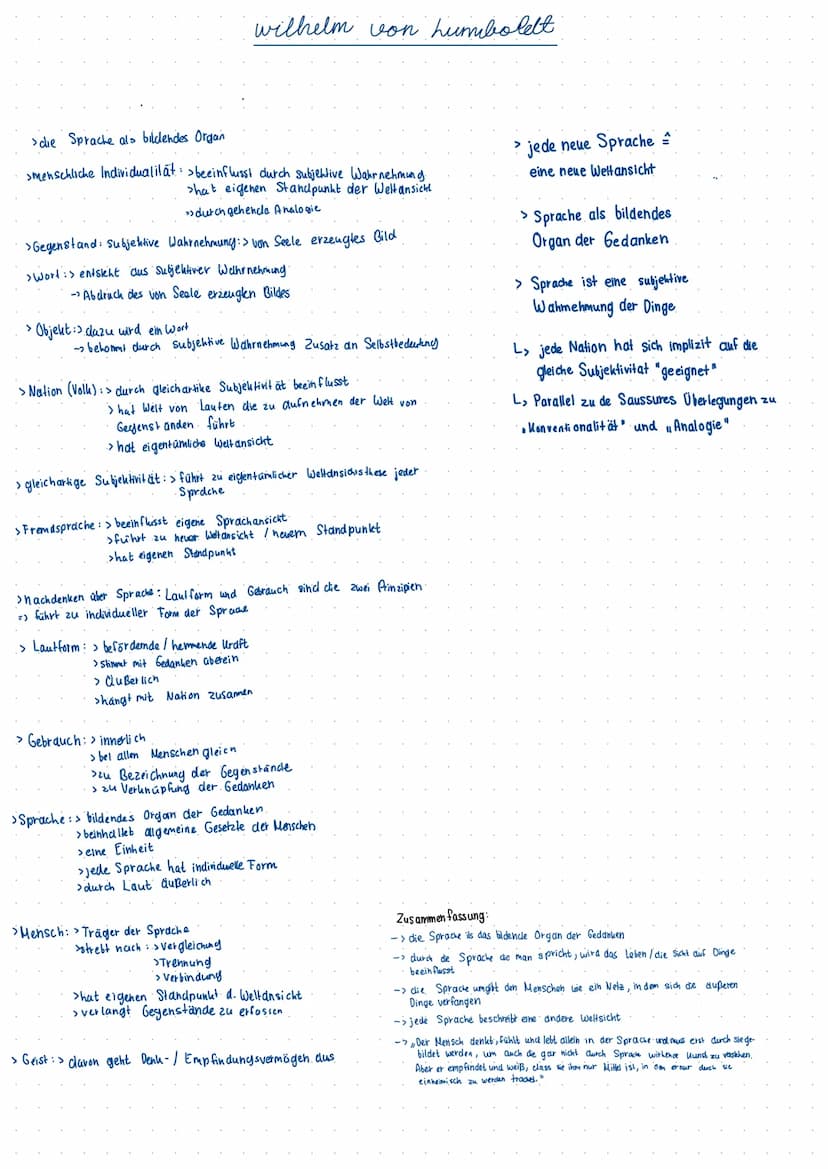 wilhelm von humboldt
> die Sprache als bildendes Organ
> menschliche Individualität: > beeinflusst durch subjektive Wahrnehmung
> hat eigenen Standpunkt der Weltansicht
=> durchgehende Analogie
> Gegenstand: subjektive Wahrnehmung: > von Seele erzeugtes Bild
> Wort: > entsteht aus subjektiver Wahrnehmung
-> Abdruck des von Seele erzeugten Bildes
> Objekt: > dazu wird ein Wort
-> bekommt durch subjektive Wahrnehmung Zusatz an Selbstbedeutung
> Nation (Volk): > durch gleichartike Subjektivität beeinflusst
> hat Welt von Lauten die zu aufnehmen der Welt von
Gegenständen führt
> hat eigentümliche Weltansicht
> gleichartige Subjektivität: > führt zu eigentümlicher Weltansichtsthese jeder
Sprache
> Fremdsprache: > beeinflusst eigene Sprachansicht
> führt zu neuer Weltansicht / neuem Standpunkt
> hat eigenen Standpunkt
> nachdenken über Sprache: Lautform und Gebrauch sind die zwei Prinzipien
=> führt zu individueller Form der Sprache
> Lautform: > befördernde / hemmende Kraft
> stimmt mit Gedanken überein
> äußerlich
> hängt mit Nation zusammen
> Gebrauch: > innerlich
> bei allen Menschen gleich
> zu Bezeichnung der Gegenstände
> zu Verknüpfung der Gedanken
> Sprache: > bildendes Organ der Gedanken
> beinhaltet allgemeine Gesetzte der Menschen
> eine Einheit
> jede Sprache hat individuelle Form
> durch Laut äußerlich
> Mensch: > Träger der Sprache
> strebt nach: > Vergleichung
> Trennung
> Verbindung
> hat eigenen Standpunkt d. Weltansicht
> verlangt Gegenstände zu erfassen
> Geist: > davon geht Denk-/ Empfindungsvermögen aus
> jede neue Sprache ≙
eine neue Weltansicht
> Sprache als bildendes
Organ der Gedanken
> Sprache ist eine subjektive
Wahrnehmung der Dinge
↳ jede Nation hat sich implizit auf die
gleiche Subjektivität "geeignet"
↳ Parallel zu de Saussures Überlegungen zu
„Konventionalität" und „Analogie"
Zusammenfassung:
-> die Sprache is das bildende Organ der Gedanken
-> durch die Sprache die man spricht, wird das Leben / die Sicht auf Dinge
beeinflusst
-> die Sprache umgibt den Menschen wie ein Netz, in dem sich die äußeren
Dinge verfangen
-> jede Sprache beschreibt eine andere Weltsicht
-> „Der Mensch denkt, fühlt und lebt allein in der Sprache und mus erst durch sie ge-
bildet werden, um auch die gar nicht durch Sprache wirkende Kunst zu verstehen.
Aber er empfindet und weiß, dass sie ihm nur Mittel ist, in
einheimisch zu werden trachtet."